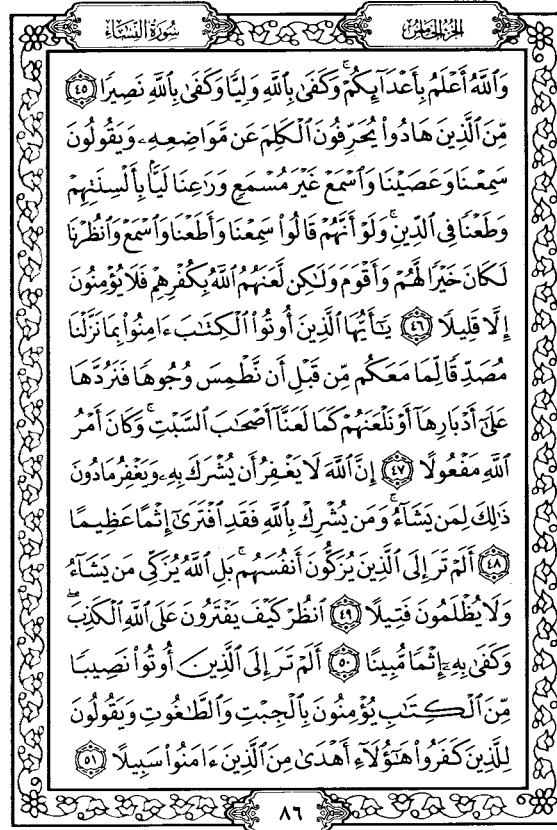 سُورَةُ النِّسَاءِ
الجُزْءُ الخَامِسُ
وَٱللَّهُ أَعْلَمُ بِأَعْدَآئِكُمْ ۚ وَكَفَىٰ بِٱللَّهِ وَلِيًّا وَكَفَىٰ بِٱللَّهِ نَصِيرًا ٤٥
مِّنَ ٱلَّذِينَ هَادُوا۟ يُحَرِّفُونَ ٱلْكَلِمَ عَن مَّوَاضِعِهِۦ وَيَقُولُونَ
سَمِعْنَا وَعَصَيْنَا وَٱسْمَعْ غَيْرَ مُسْمَعٍ وَرَٰعِنَا لَيًّۢا بِأَلْسِنَتِهِمْ
وَطَعْنًا فِى ٱلدِّينِ ۚ وَلَوْ أَنَّهُمْ قَالُوا۟ سَمِعْنَا وَأَطَعْنَا وَٱسْمَعْ وَٱنظُرْنَا
لَكَانَ خَيْرًا لَّهُمْ وَأَقْوَمَ وَلَـٰكِن لَّعَنَهُمُ ٱللَّهُ بِكُفْرِهِمْ فَلَا يُؤْمِنُونَ
إِلَّا قَلِيلًا ٤٦ يَـٰٓأَيُّهَا ٱلَّذِينَ أُوتُوا۟ ٱلْكِتَـٰبَ ءَامِنُوا۟ بِمَا نَزَّلْنَا
مُصَدِّقًا لِّمَا مَعَكُم مِّن قَبْلِ أَن نَّطْمِسَ وُجُوهًا فَنَرُدَّهَا
عَلَىٰٓ أَدْبَارِهَآ أَوْ نَلْعَنَهُمْ كَمَا لَعَنَّآ أَصْحَـٰبَ ٱلسَّبْتِ ۚ وَكَانَ أَمْرُ
ٱللَّهِ مَفْعُولًا ٤٧ إِنَّ ٱللَّهَ لَا يَغْفِرُ أَن يُشْرَكَ بِهِۦ وَيَغْفِرُ مَا دُونَ
ذَٰلِكَ لِمَن يَشَآءُ ۚ وَمَن يُشْرِكْ بِٱللَّهِ فَقَدِ ٱفْتَرَىٰٓ إِثْمًا عَظِيمًا
٤٨ أَلَمْ تَرَ إِلَى ٱلَّذِينَ يُزَكُّونَ أَنفُسَهُم ۚ بَلِ ٱللَّهُ يُزَكِّى مَن يَشَآءُ
وَلَا يُظْلَمُونَ فَتِيلًا ٤٩ ٱنظُرْ كَيْفَ يَفْتَرُونَ عَلَى ٱللَّهِ ٱلْكَذِبَ ۖ
وَكَفَىٰ بِهِۦٓ إِثْمًا مُّبِينًا ٥٠ أَلَمْ تَرَ إِلَى ٱلَّذِينَ أُوتُوا۟ نَصِيبًا
مِّنَ ٱلْكِتَـٰبِ يُؤْمِنُونَ بِٱلْجِبْتِ وَٱلطَّـٰغُوتِ وَيَقُولُونَ
لِلَّذِينَ كَفَرُوا۟ هَـٰٓؤُلَآءِ أَهْدَىٰ مِنَ ٱلَّذِينَ ءَامَنُوا۟ سَبِيلًا ٥١
٨٦